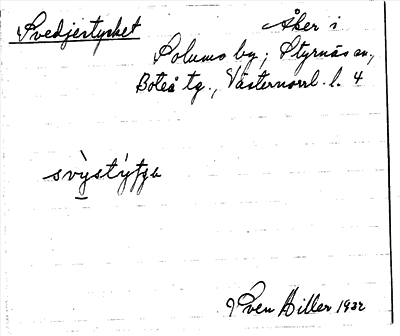 Svedjestycket
Åker i
Solums by, Styrnäs sn,
Boteå tg., Västernorrl. l. 4
svỳstýʃɟa
Sven Hiller 1932